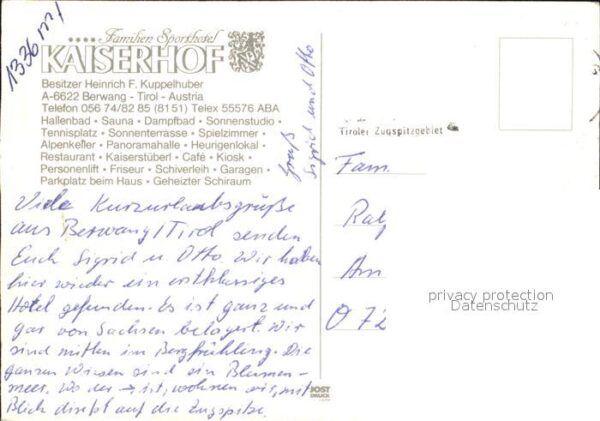 1336 m/1
Familien Sporthotel
KAISERHOF
Besitzer Heinrich F. Kuppelhuber
A-6622 Berwang - Tirol - Austria
Telefon 056 74/82 85 (8151) Telex 55576 ABA
Hallenbad • Sauna • Dampfbad • Sonnenstudio •
Tennisplatz • Sonnenterrasse • Spielzimmer •
Alpenkeller • Panoramahalle • Heurigenlokal •
Restaurant • Kaiserstüberl • Café • Kiosk •
Personenlift • Friseur • Schiverleih • Garagen •
Parkplatz beim Haus • Geheizter Schiraum
Viele Kurzurlaubsgrüße
aus Berwang/Tirol senden
Euch Sigrid u Otto. Wir haben
hier wieder ein erstklassiges
Hotel gefunden. Es ist ganz und
gar von Sachsen belagert. Wir
sind mitten im Bergfrühling. Die
ganzen Wiesen sind ein Blumen-
meer. Wo der → ist, wohnen wir, mit
Blick direkt auf die Zugspitze.
Gruß
Sigrid und Otto
Tiroler Zugspitzgebiet
Fam.
Ralf
Am
O 72
privacy protection
Datenschutz
JOST
DRUCK